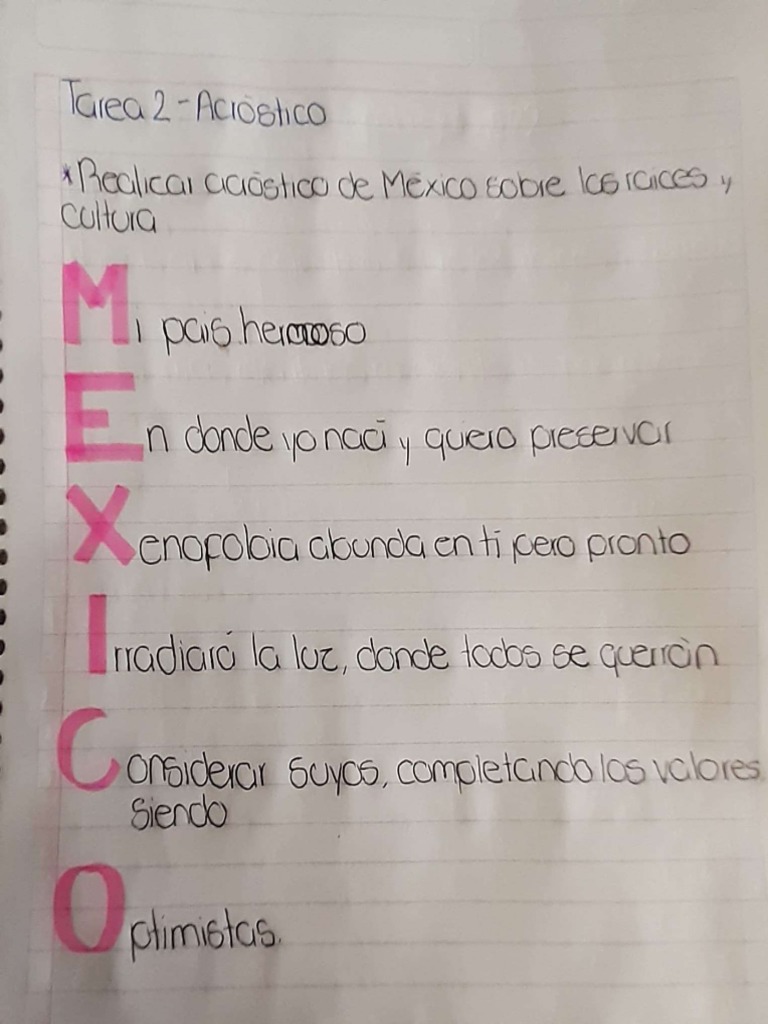 Tarea 2 - Acróstico
*Realicar acróstico de México sobre las raices y
cultura
Mi pais hermoso
En donde yo nací y quiero preservar
Xenofobia abunda en ti pero pronto
Irradiará la luz, donde todos se querrán
Considerar suyos, completando los valores
siendo
Optimistas.